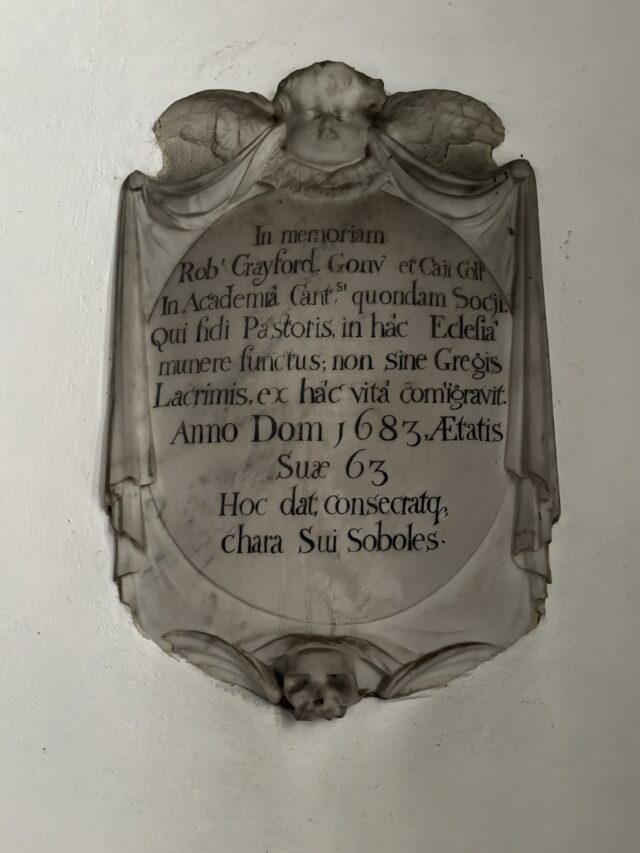 In memoriam
Robᵗ Crayford, Gonv et Caij Coll
In Academiâ Cant:ˢⁱ quondam Socij.
Qui fidi Pastoris, in hâc Eclesiâ
munere functus; non sine Gregis
Lacrimis, ex hâc vitâ com̄igravit.
Anno Dom 1683, Ætatis
Suæ 63
Hoc dat, consecratq,
chara Sui Soboles.